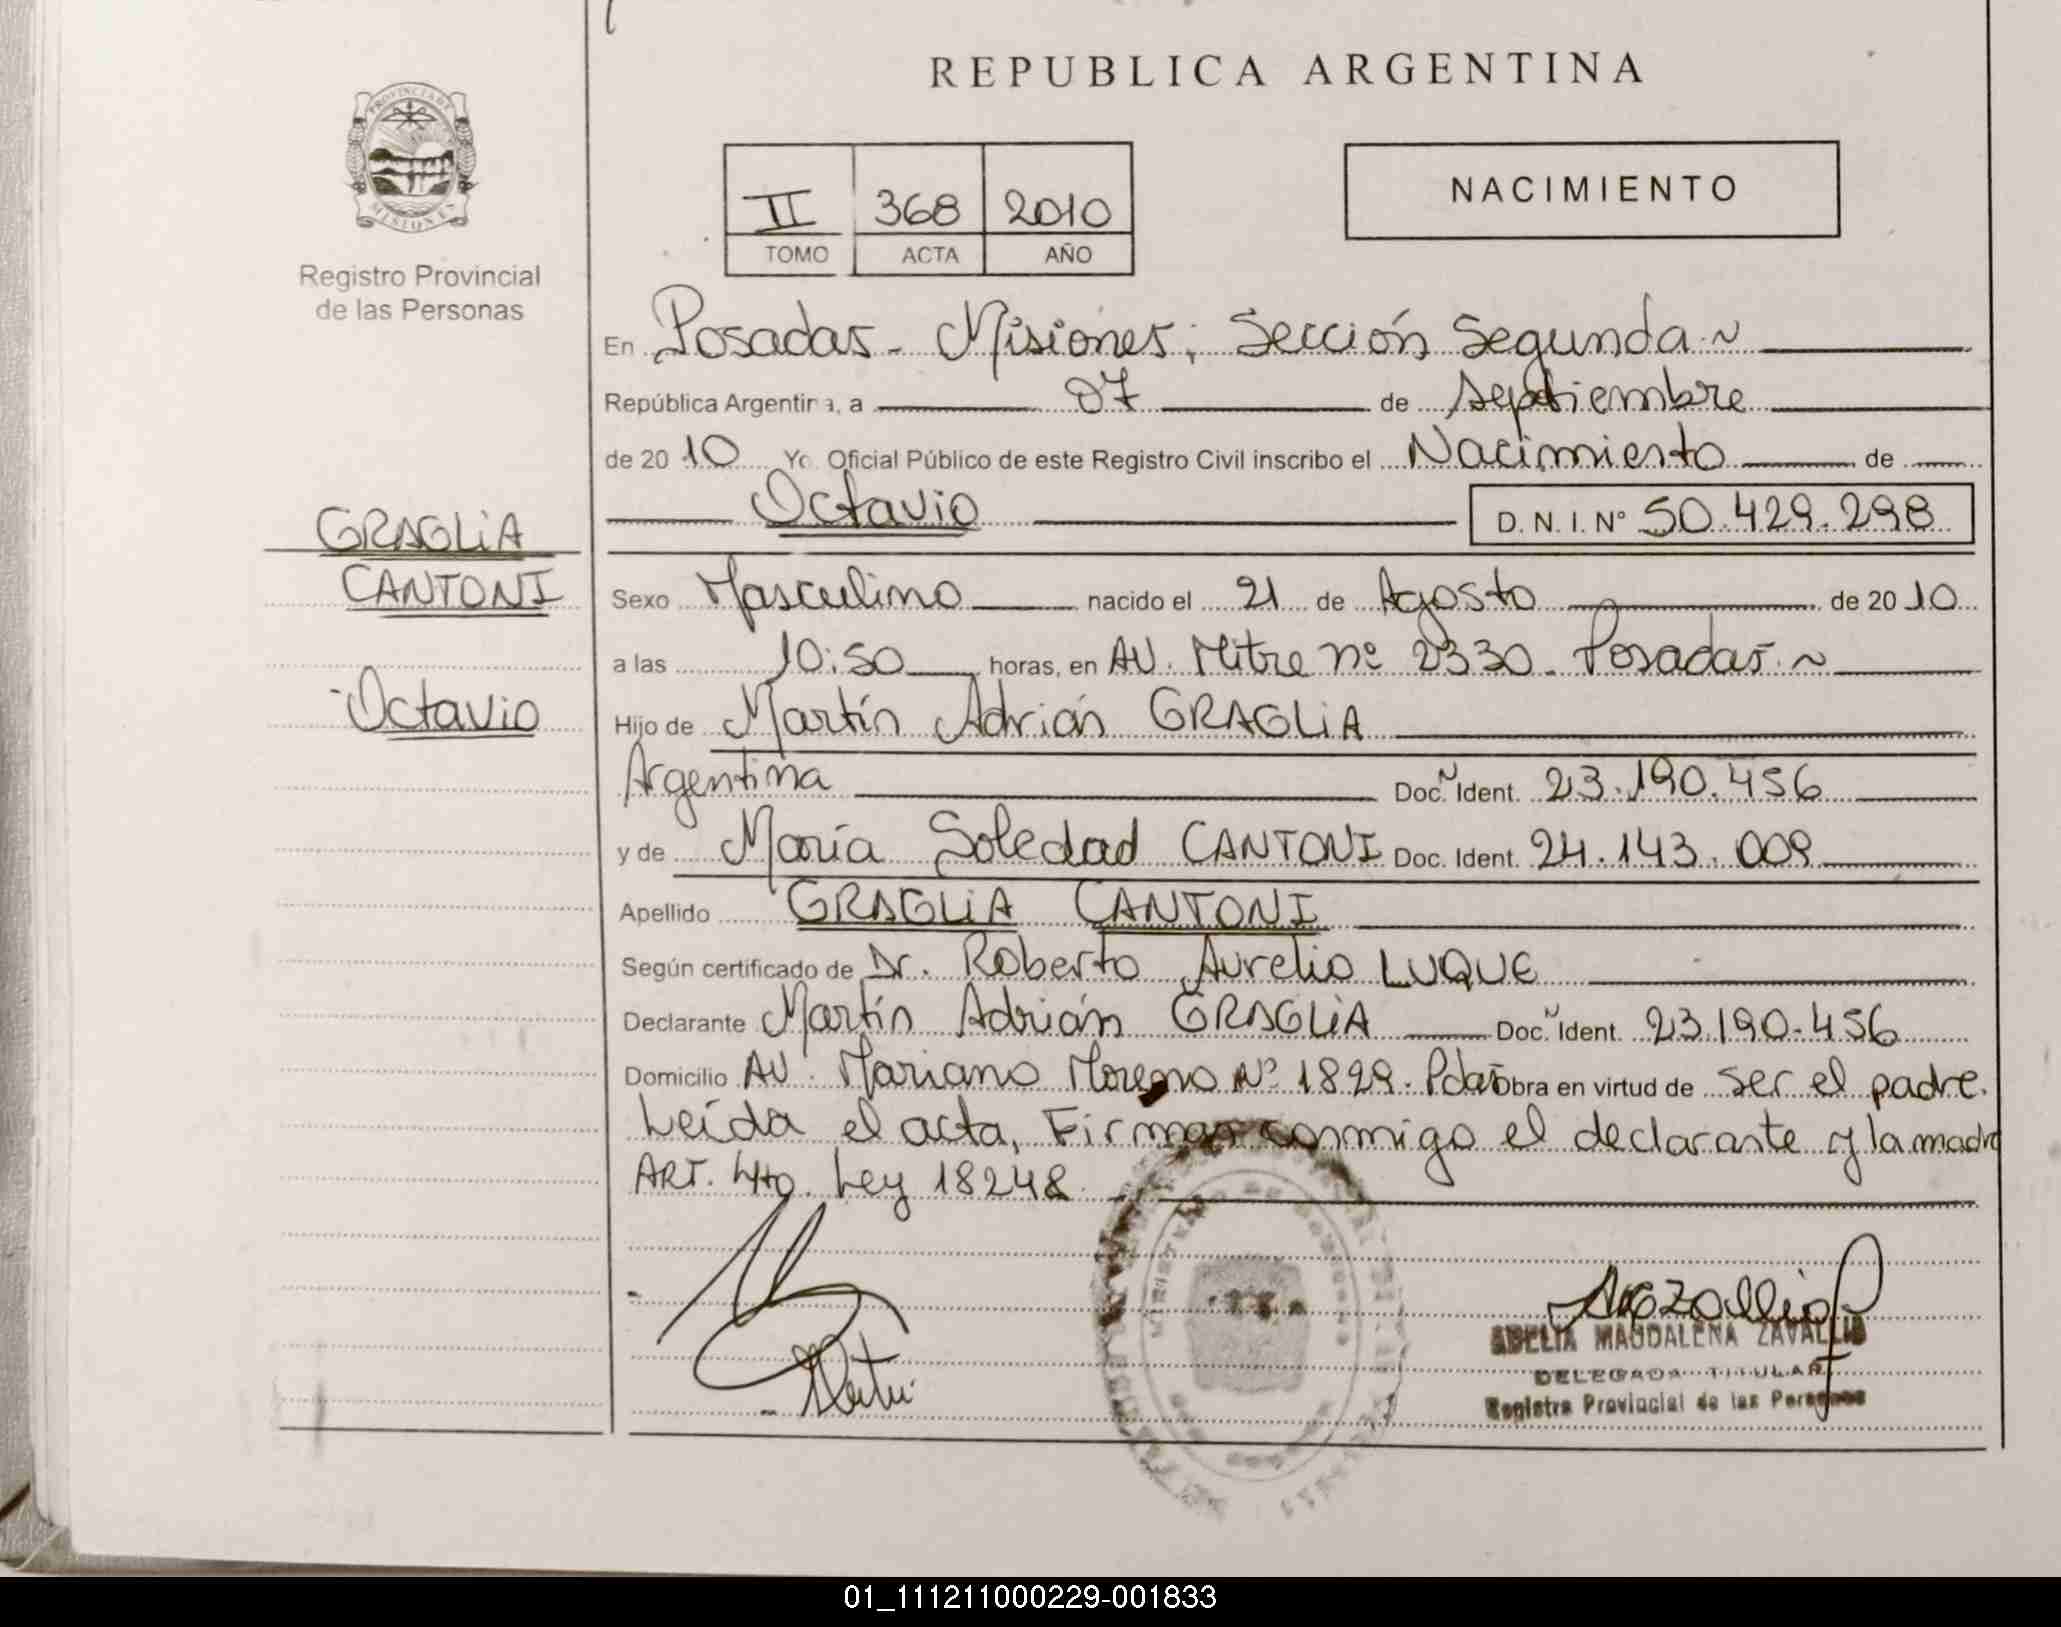 REPUBLICA ARGENTINA
PROVINCIA DE
MISIONES
Registro Provincial
de las Personas
II 368 2010
TOMO ACTA AÑO
NACIMIENTO
En Posadas - Misiones; Sección Segunda ~
República Argentina, a 07 de septiembre
de 2010 Yo Oficial Público de este Registro Civil inscribo el Nacimiento de
Octavio D. N. I. Nº 50.429.298
GRAGLIA
CANTONI
Octavio
Sexo Masculino nacido el 21 de Agosto de 2010
a las 10:50 horas, en AV. Mitre nº 2330 - Posadas. ~
Hijo de Martín Adrián GRAGLIA
Argentina Doc. Ident. 23.190.456
y de María Soledad CANTONI Doc. Ident. 24.143.009
Apellido GRAGLIA CANTONI
Según certificado de Dr. Roberto Aurelio LUQUE
Declarante Martín Adrián GRAGLIA Doc. Ident. 23.190.456
Domicilio AV. Mariano Moreno Nº 1829. Pdas obra en virtud de ser el padre.
Leída el acta, Firman conmigo el declarante y la madre
ART. 4to. Ley 18248
ADELIA MAGDALENA ZAVALLIO
DELEGADA TITULAR
Registro Provincial de las Personas
01_111211000229-001833